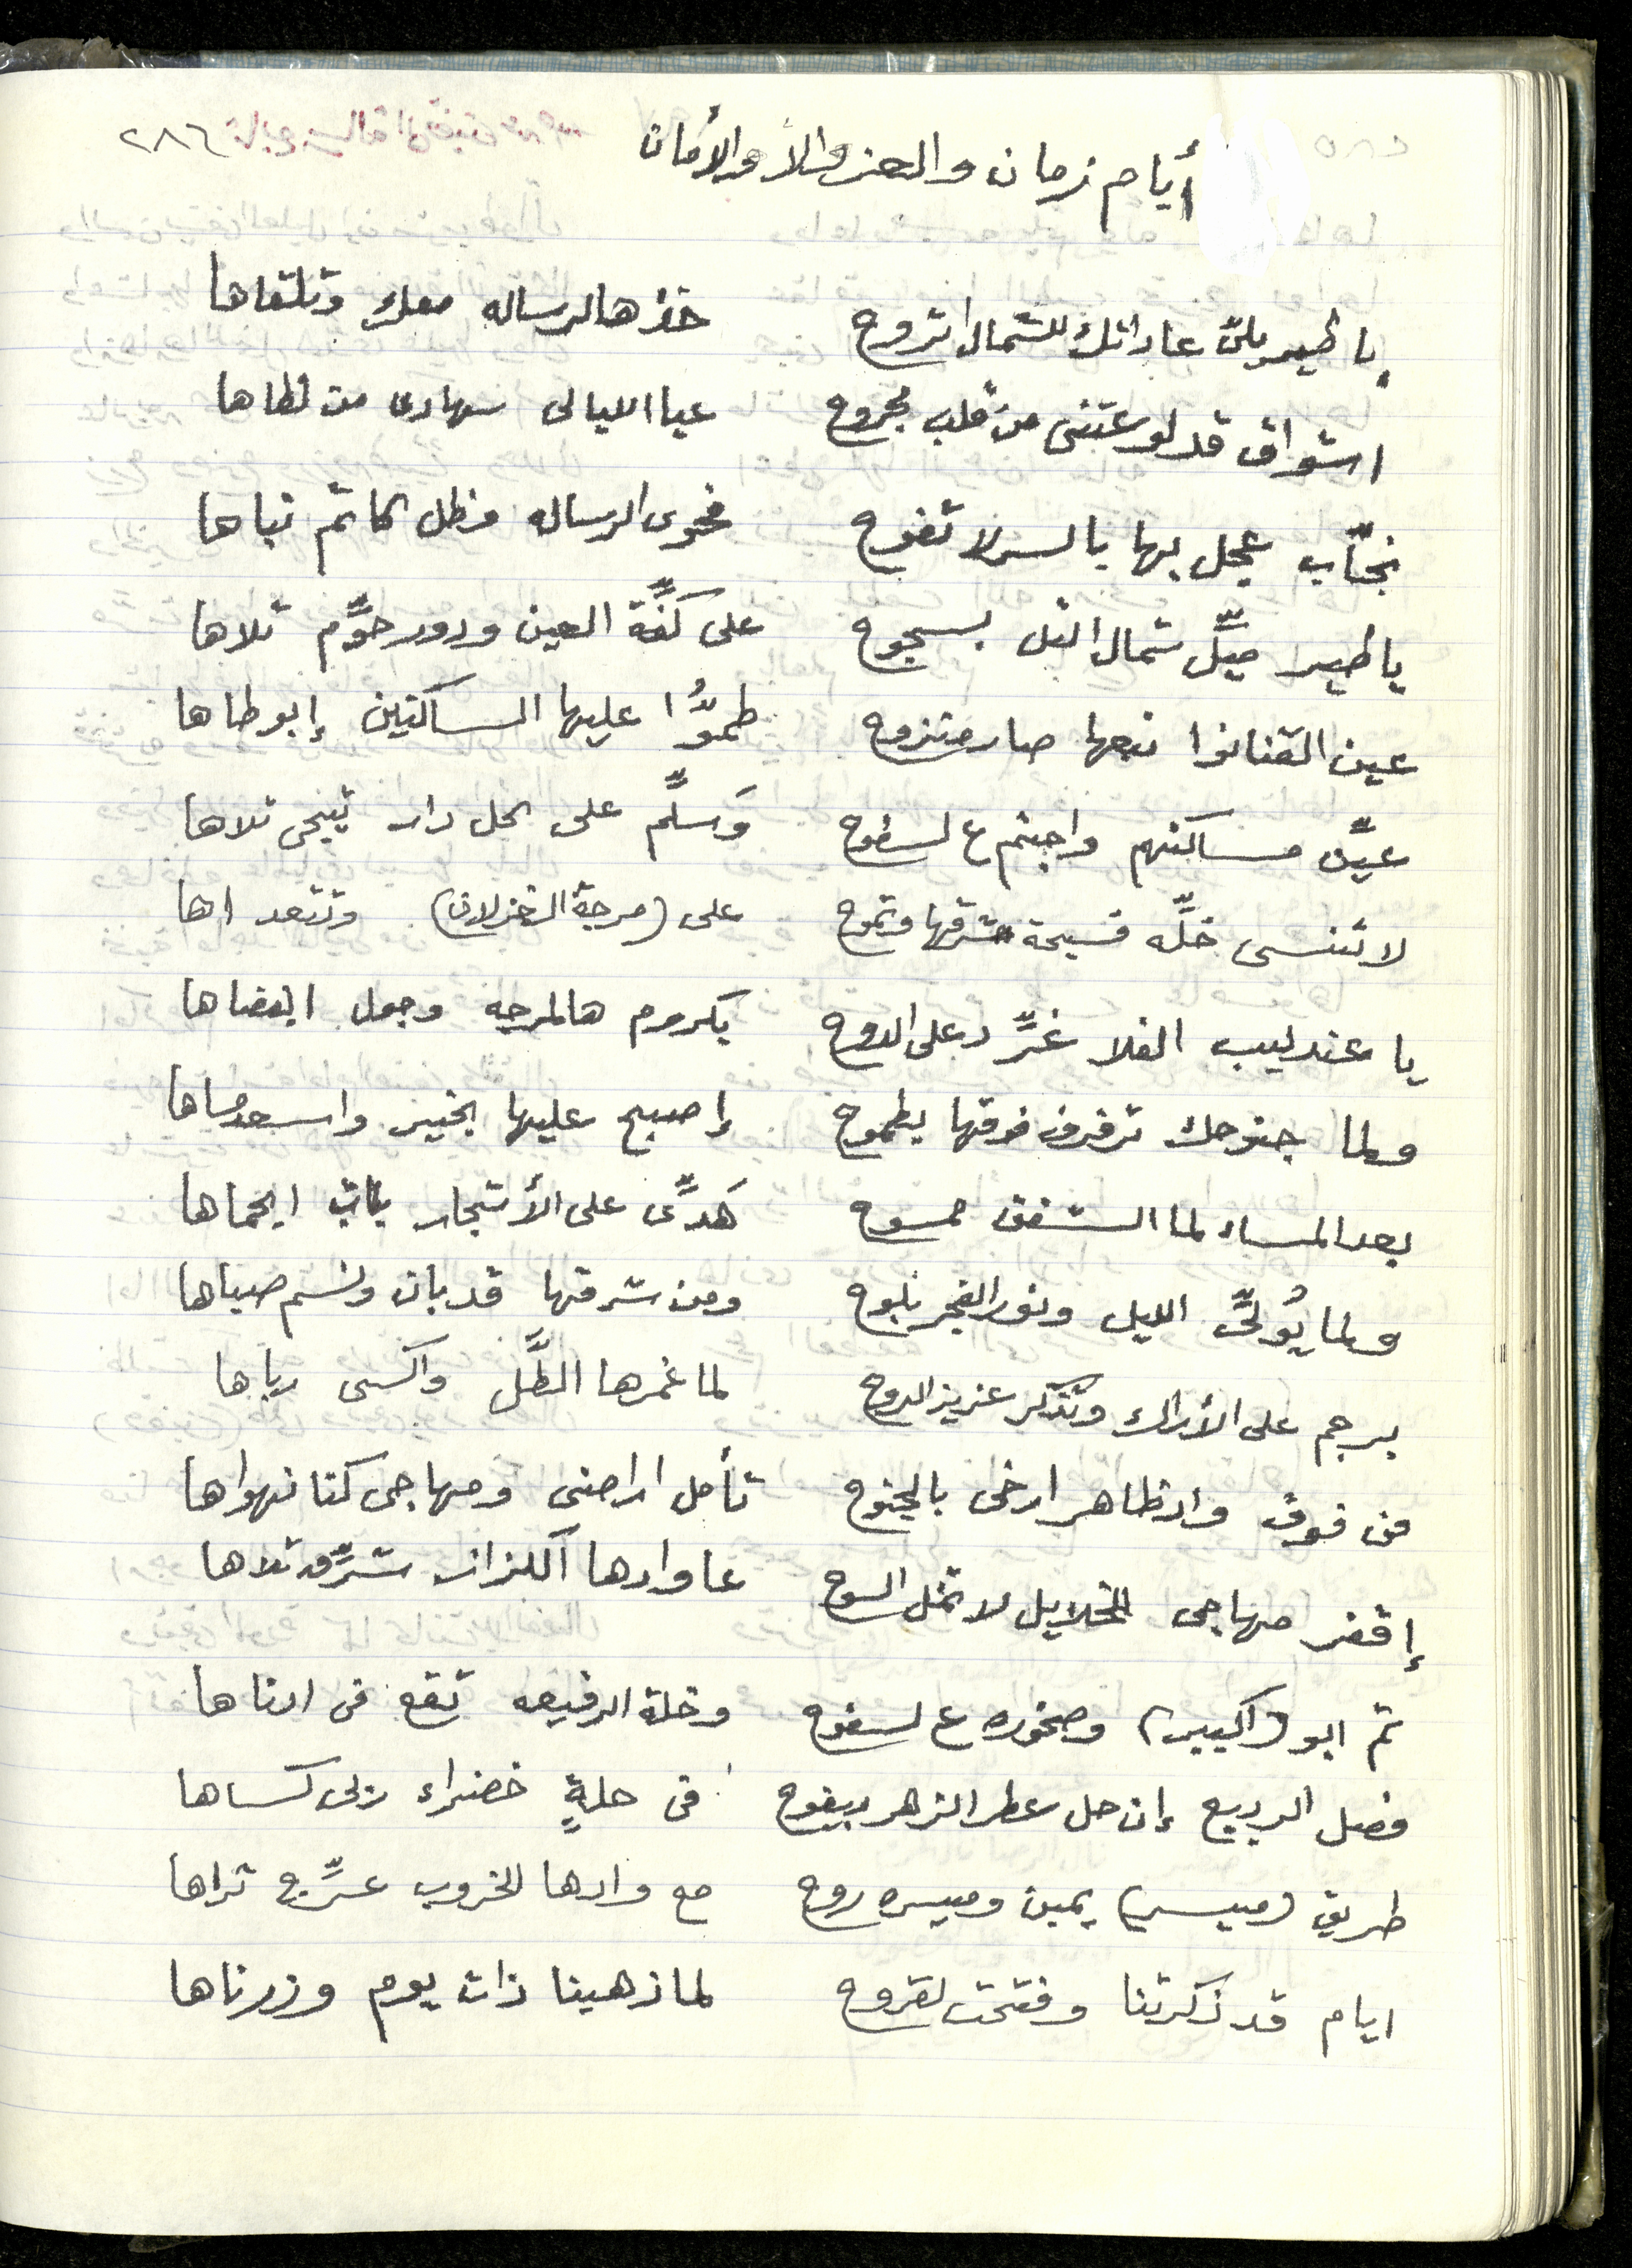 ٢٨٦
أيام زمان والعز والأمان
يا طير يللي عاداتك للشمال اتروح خذ هالرساله معك وتلقاها
اشواق قد لوعتني من قلب مجروح عيا الليالي سهادى من لظاها
نجّاب عجل بها بالسر لا تفوح فحوى الرساله وظل كاتم نباها
يا طير ميِّل شمال التل بسجوح على كفَّة العين ودور حوَّم تلاها
عين القنانوا نبعها صار منزوح طمُّوا عليها الساكنين إبوطاها
عيِّن مساكنهم واجثم ع لسطوح وَسلِّم على كل دار تيجي تلاها
لا تنسى خلِّه فسيحة شرقها وتموح على (مرجة الغزلان) وتتعداها
يا عندليب الفلا غرِّد على الدوح بكروم هالمرجه وجول ابفضاها
ولما جنوحك ترفرف فوقها بطموح إصبح عليها بخير واسعد مساها
بعد المساء لما الشفق ممسوح هَدِّى على الأشجار بات ابحماها
ولما يُولِّى الليل ونور الفجر بلوح ومن شرقها قد بان ونسم صباها
برجم على الأراك وتذكر عزيز الروح لما غمرها الطَّل واكسى رباها
من فوق واد ظاهر ارخى بالجنوح تأمل اراضى ومهاجى كنا نهواها
إقفز مهاجى الخلايل لا تمل السوح عا وادها الكزاز شرِّق تلاها
تم ابو (اكبير) وصخوره ع لسفوح وخلة الرفيعه تقع في ادناها
فصل الربيع إن حل عطر الزهر بيفوح في حلةٍ خضراء ربى كساها
طريق (ميسر) يمين وميسره روح مع وادها الخروب عرِّج تراها
ايام قد ذكرتنا وفتحت لقروح لما ذهبنا ذات يوم وزرناها